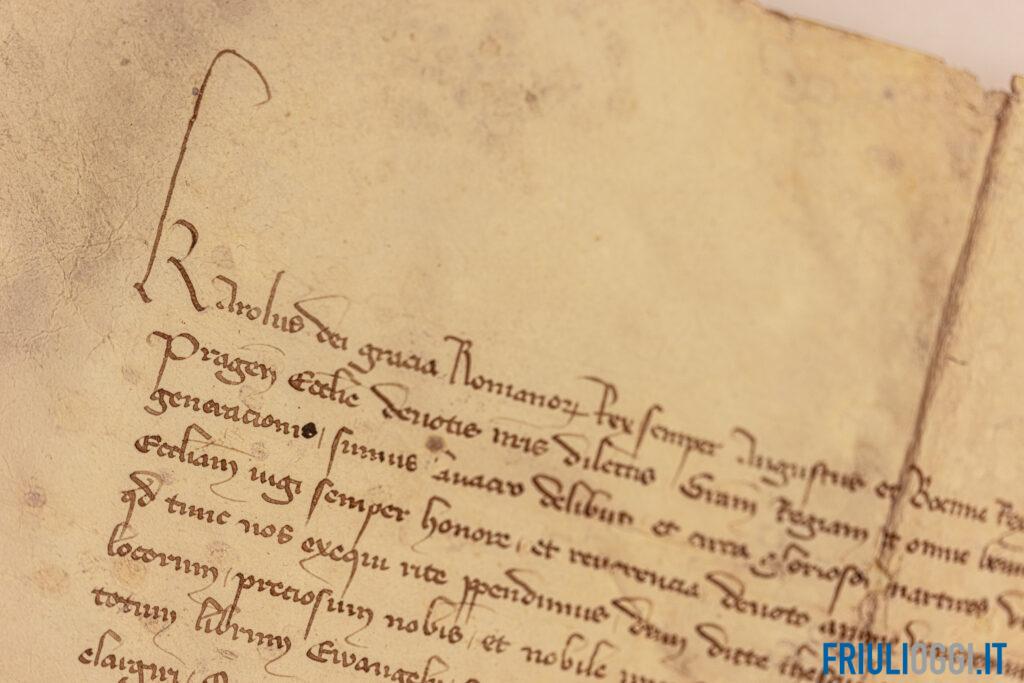 Karolus dei gracia Romanor Rex semper Augustus et Boemie Rex
Pragen Ecclie devotis nris dilectis Gram Regiam et omne bonum
generacionis sumus avacio delibuti et circa gloriosos martires
Eccliam iugi semper honore, et reverencia devote
qd tunc nos exequi rite ppendimus dum dicte
locorum, preciosum nobis, et nobile
totum librum Ewangelii
elargiri,
FRIULIOGGI.IT